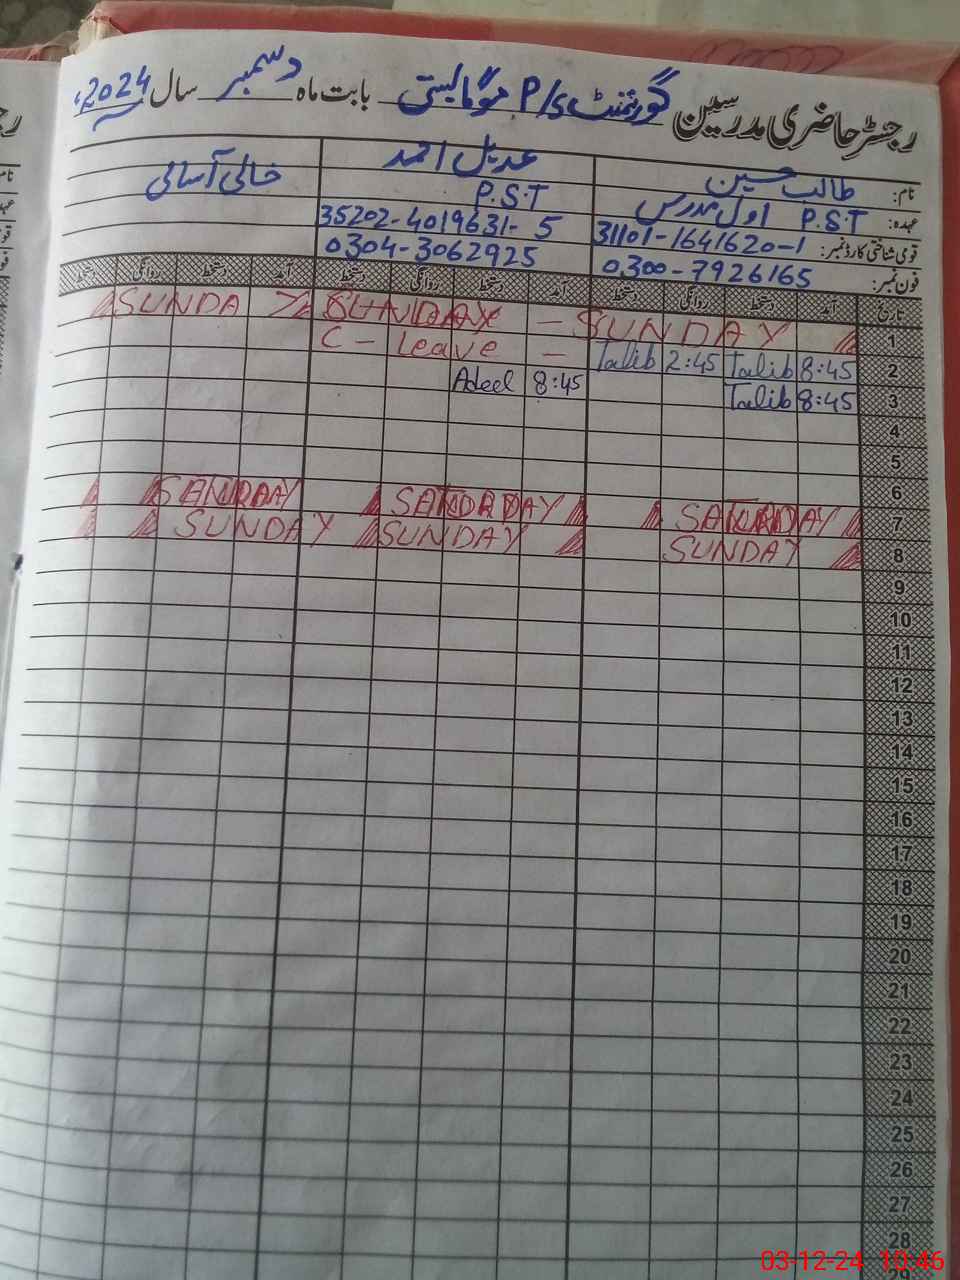 رجسٹر حاضری مدرسین گورنمنٹ P/S موگا بستی بابت ماہ دسمبر سال 2024ء
نام: طالب حسین عدیل احمد خالی آسامی
عہدہ: P.S.T اول مدرس P.S.T
قومی شناختی کارڈ نمبر: 31101-1641620-1 35202-4019631-5
فون نمبر: 0300-7926165 0304-3062925
تاریخ آمد دستخط روانگی دستخط آمد دستخط روانگی دستخط آمد دستخط روانگی دستخط
1 SUNDAY - SUNDAY SUNDAY
2 8:45 Talib 2:45 Talib - C - Leave
3 8:45 Talib 8:45 Adeel
4
5
6
7 SATURDAY SATURDAY SATURDAY
8 SUNDAY SUNDAY SUNDAY
9
10
11
12
13
14
15
16
17
18
19
20
21
22
23
24
25
26
27
28
29
03-12-24 10:46